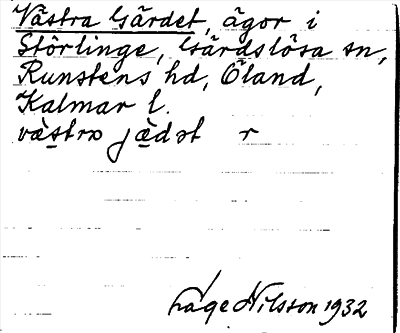 Västra Gärdet, ägor i
Störlinge, Gärdslösa sn,
Runstens hd, Öland,
Kalmar l.
væ̀stra jæ̀dət r
Lage Nilsson 1932